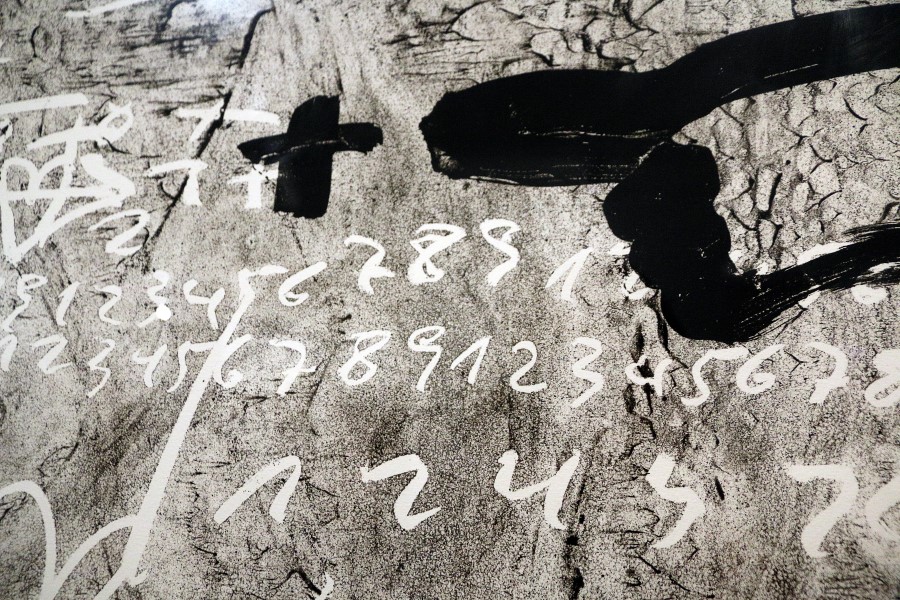 T +
T T
2
9 1 2 3 4 5 6 7 8 9 1
1 2 3 4 5 6 7 8 9 1 2 3 4 5 6 7 8
1 2 4 5 7